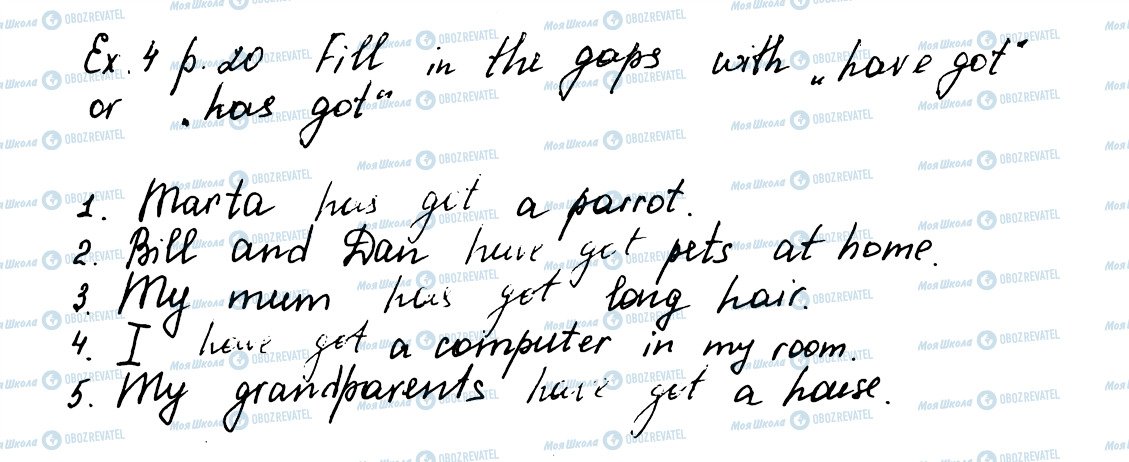 Ex. 4 p. 20 Fill in the gaps with „have got“
or „has got“
1. Marta has got a parrot.
2. Bill and Dan have got pets at home.
3. My mum has got long hair.
4. I have got a computer in my room.
5. My grandparents have got a house.